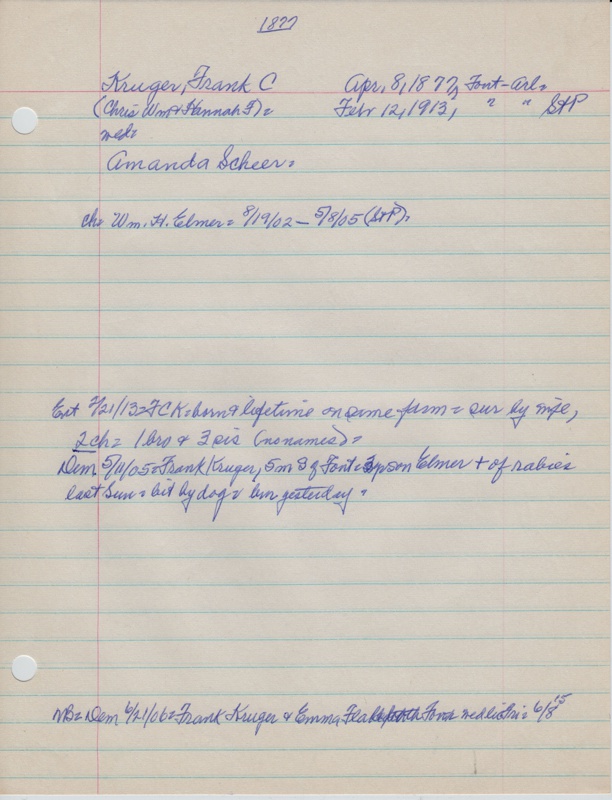 1877
Kruger, Frank C Apr. 8, 1877, Font-Arl=
(Chris Wm + Hannah F)= Febr 12, 1913, " " StP
med=
Amanda Scheer=
ch= Wm. H. Elmer= 8/19/02 - 5/8/05 (StP)=
Ent 2/21/13=FCK=born & lifetime on same farm= sur by wife,
2 ch= 1 bro & 3 sis (no names)=
Dem 5/11/05=Frank Kruger, 5m S of Font= 3yo son Elmer + of rabies
last Sun= bit by dog= bur yesterday=
NB= Dem 6/21/06=Frank Kruger & Emma med lic Fri= 6/15